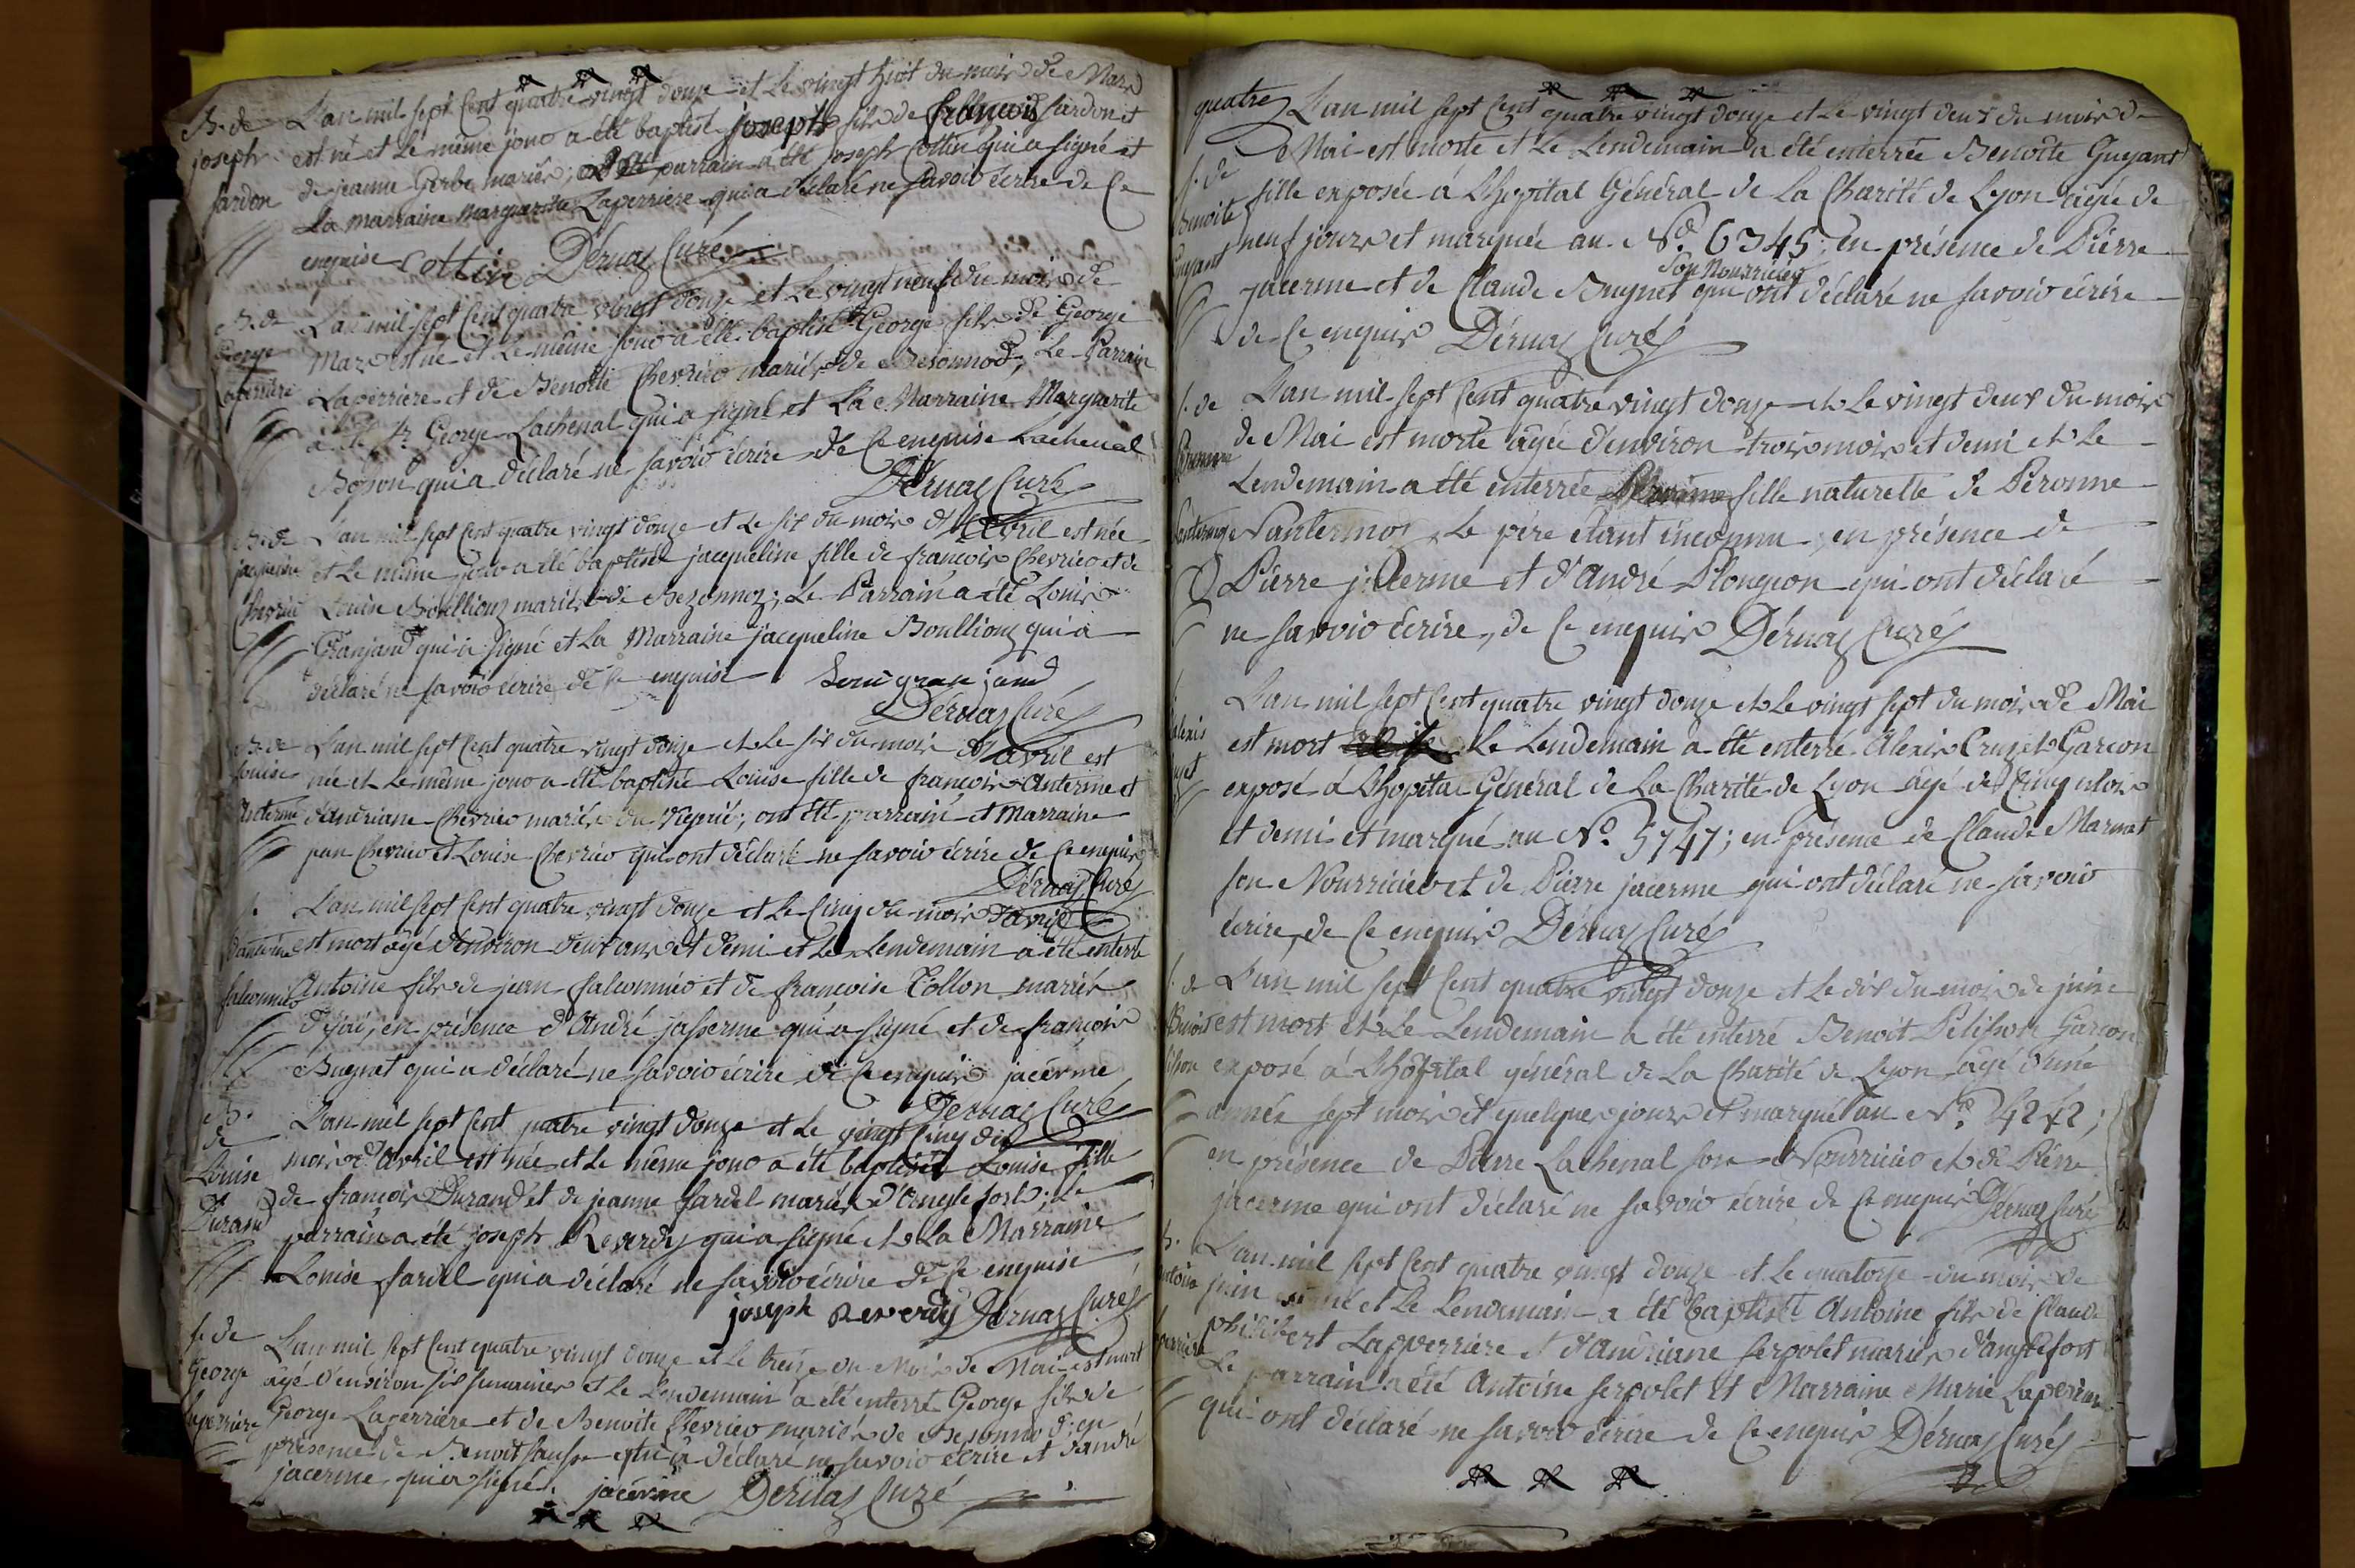 B. de
joseph
fardon
L'an mil sept Cent quatre vingt douze et Le vingt huit du mois de Mars
est né et Le même jour a été baptisé joseph fils de françois fardon et
de jeanne Gerbe mariés; Le parrain a été joseph Cottin qui a signé et
La marraine Marguerite Laperriere qui a déclaré ne savoir écrire de Ce
enquise Cottin Dérnaz Curé
B. de
George
Laperriere
L'an mil sept Cent quatre vingt douze et Le vingt neuf du mois de
Mars est né et Le même jour a été baptisé George fils de George
Laperriere et de Benoite Chevrier mariés de Besonnod; Le Parrain
a été Sr George Lachenal qui a signé et La Marraine Marguerite
Boson qui a déclaré ne savoir écrire de Ce enquise Lachenal
Dérnaz Curé
B. de
jacqueline
Chevrier
L'an mil sept Cent quatre vingt douze et Le six du mois d'Avril est née
et Le même jour a été baptisée jacqueline fille de françois Chevrier et de
Louise Boullioux mariés de Bezonnoz; Le Parrain a été Louis
Granjand qui a signé et La Marraine jacqueline Boullioux qui a
déclaré ne savoir écrire de Ce enquise Louis granjand
Dérnaz Curé
B. de
Louise
Anterme
L'an mil sept Cent quatre vingt douze et Le six du mois d'Avril est
née et Le même jour a été baptisée Louise fille de françois Anterme et
d'Andriane Chevrier mariés; ont été parrain et Marraine
jean Chevrier et Louise Chevrier qui ont déclaré ne savoir écrire de Ce enquis
Dérnaz Curé
f.
d'antoine
falconnier
L'an mil sept Cent quatre vingt douze et Le Cinq du mois d'Avril
est mort agé d'environ deux ans et demi et Le Lendemain a été enterré
Antoine fils de jean falconnier et de françoise Collon mariés
en présence d'André jasserme qui a signé et de françois
Bugnet qui a déclaré ne savoir écrire de Ce enquis jacerme
Dérnaz Curé
B.
de
Louise
Durand
L'an mil sept Cent quatre vingt douze et Le vingt Cinq du
mois d'Avril est née et Le même jour a été baptisée Louise fille
de françois Durand et de jeanne fardel mariés d'Anglefort; Le
parrain a été joseph Reverdy qui a signé et La Marraine
Louise fardel qui a déclaré ne savoir écrire de Ce enquise
joseph Reverdy Dérnaz Curé
f. de
George
Laperriere
L'an mil sept Cent quatre vingt douze et Le treize du Mois de Mai est mort
agé d'environ six semaines et Le Lendemain a été enterré George fils de
George Laperriere et de Benoite Chevrier mariés de Besonnod; en
présence de Benoit qui a déclaré ne savoir écrire et d'andré
jacerme qui a signé. jacérme Dérnaz Curé
quatre
f. de
Benoite
Guyant
L'an mil sept Cent quatre vingt douze et Le vingt deux du mois de
Mai est morte et Le Lendemain a été enterrée Benoite Guyant
fille exposée á L'hopital Général de La Charité de Lyon agée de
neuf jours et marquée au No. 6345; en présence de Pierre
son Nourricier
jacerme et de Claude Bugnet qui ont déclaré ne savoir écrire
de Ce enquis Dérnaz Curé
f. de
L'an mil sept Cent quatre vingt douze et Le vingt deux du mois
de Mai est morte agée d'environ trois mois et demi et Le
Lendemain a été enterrée fille naturelle de Péronne
Le père étant inconnu, en présence de
Pierre jacerme et d'André Plongeon qui ont déclaré
ne savoir écrire, de Ce enquis Dérnaz Curé
alexis
L'an mil sept Cent quatre vingt douze et Le vingt sept du mois de Mai
est mort Le Lendemain a été enterré Alexis Cruzet Garcon
exposé á L'hopital Général de La Charité de Lyon agé de Cinq mois
et demi et marqué au No. 5747; en présence de Claude Marmet
son Nourricier et de Pierre jacerme qui ont déclaré ne savoir
écrire, de Ce enquis Dérnaz Curé
f. de
Benoit
L'an mil sept Cent quatre vingt douze et Le dix du mois de juin
est mort et Le Lendemain a été enterré Benoit Pelisson Garcon
exposé á L'hopital général de La Charité de Lyon agé d'une
année sept mois et quelques jours et marqué au No. 4242;
en présence de Pierre Lachenal son Nourricier et de Pierre
jacerme qui ont déclaré ne savoir écrire de Ce enquis Dérnaz Curé
L'an mil sept Cent quatre vingt douze et Le quatorze du mois de
juin est né et Le Lendemain a été baptisé Antoine fils de Claude
philibert Laperriere et d'Andriane Serpolet mariés d'anglefort
Le parrain a été Antoine Serpolet et Marraine Marie Laperriere
qui ont déclaré ne savoir écrire de Ce enquis Dérnaz Curé